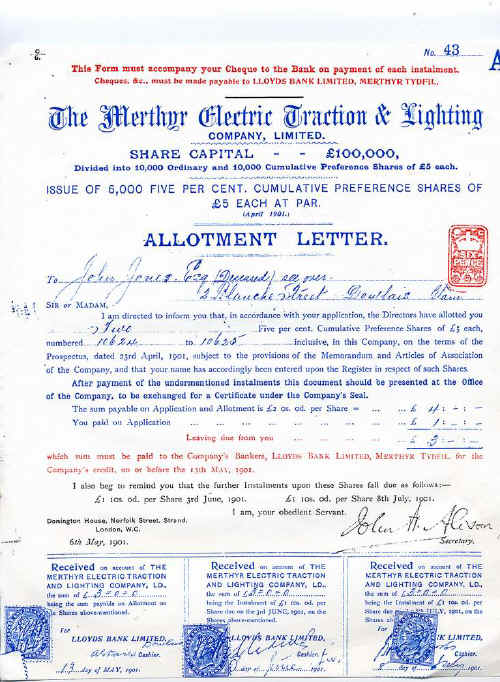 No. 43
A
This Form must accompany your Cheque to the Bank on payment of each instalment.
Cheques, &c., must be made payable to LLOYDS BANK LIMITED, MERTHYR TYDFIL.
The Merthyr Electric Traction & Lighting
COMPANY, LIMITED.
SHARE CAPITAL - - £100,000,
Divided into 10,000 Ordinary and 10,000 Cumulative Preference Shares of £5 each.
ISSUE OF 6,000 FIVE PER CENT. CUMULATIVE PREFERENCE SHARES OF
£5 EACH AT PAR.
(April 1901.)
ALLOTMENT LETTER.
SIX
PENCE
To John Jones Esq (Deceased) see over
2 Blanche Street Dowlais Glam
SIR OR MADAM,
I am directed to inform you that, in accordance with your application, the Directors have allotted you
Two Five per cent. Cumulative Preference Shares of £5 each,
numbered 10624 to 10625 inclusive, in this Company, on the terms of the
Prospectus, dated 23rd April, 1901, subject to the provisions of the Memorandum and Articles of Association
of the Company, and that your name has accordingly been entered upon the Register in respect of such Shares.
After payment of the undermentioned instalments this document should be presented at the Office
of the Company, to be exchanged for a Certificate under the Company's Seal.
The sum payable on Application and Allotment is £2 0s. 0d. per Share = ... ... £ 4 : - : -
You paid on Application ... ... ... ... ... ... ... £ 1 : - : -
Leaving due from you ... ... £ 3 : - : -
which sum must be paid to the Company's Bankers, LLOYDS BANK LIMITED, MERTHYR TYDFIL for the
Company's credit, on or before the 13th MAY, 1901.
I also beg to remind you that the further Instalments upon these Shares fall due as follows:—
£1 10s. 0d. per Share 3rd June, 1901. £1 10s. 0d. per Share 8th July, 1901.
I am, your obedient Servant,
Donington House, Norfolk Street, Strand,
London, W.C.
6th May, 1901.
John H. Alison
Secretary.
Received on account of THE
MERTHYR ELECTRIC TRACTION
AND LIGHTING COMPANY, LD.,
the sum of £ 3-0-0
being the sum payable on Allotment on
the Shares above-mentioned.
For
LLOYDS BANK LIMITED,
Dowlais
Cashier.
13 day of MAY, 1901.
Received on account of THE
MERTHYR ELECTRIC TRACTION
AND LIGHTING COMPANY, LD.,
the sum of £3-0-0
being the Instalment of £1 10s. 0d. per
Share due on the 3rd JUNE, 1901, on the
Shares above-mentioned.
LLOYDS BANK LIMITED,
Cashier.
day of JUNE 1901.
Received on account of THE
MERTHYR ELECTRIC TRACTION
AND LIGHTING COMPANY, LD.,
the sum of £3-0-0
being the Instalment of £1 10s. 0d. per
Share due JULY, 1901, on the
Shares above-
BANK LIMITED,
Cashier.
8 day of July 1901.